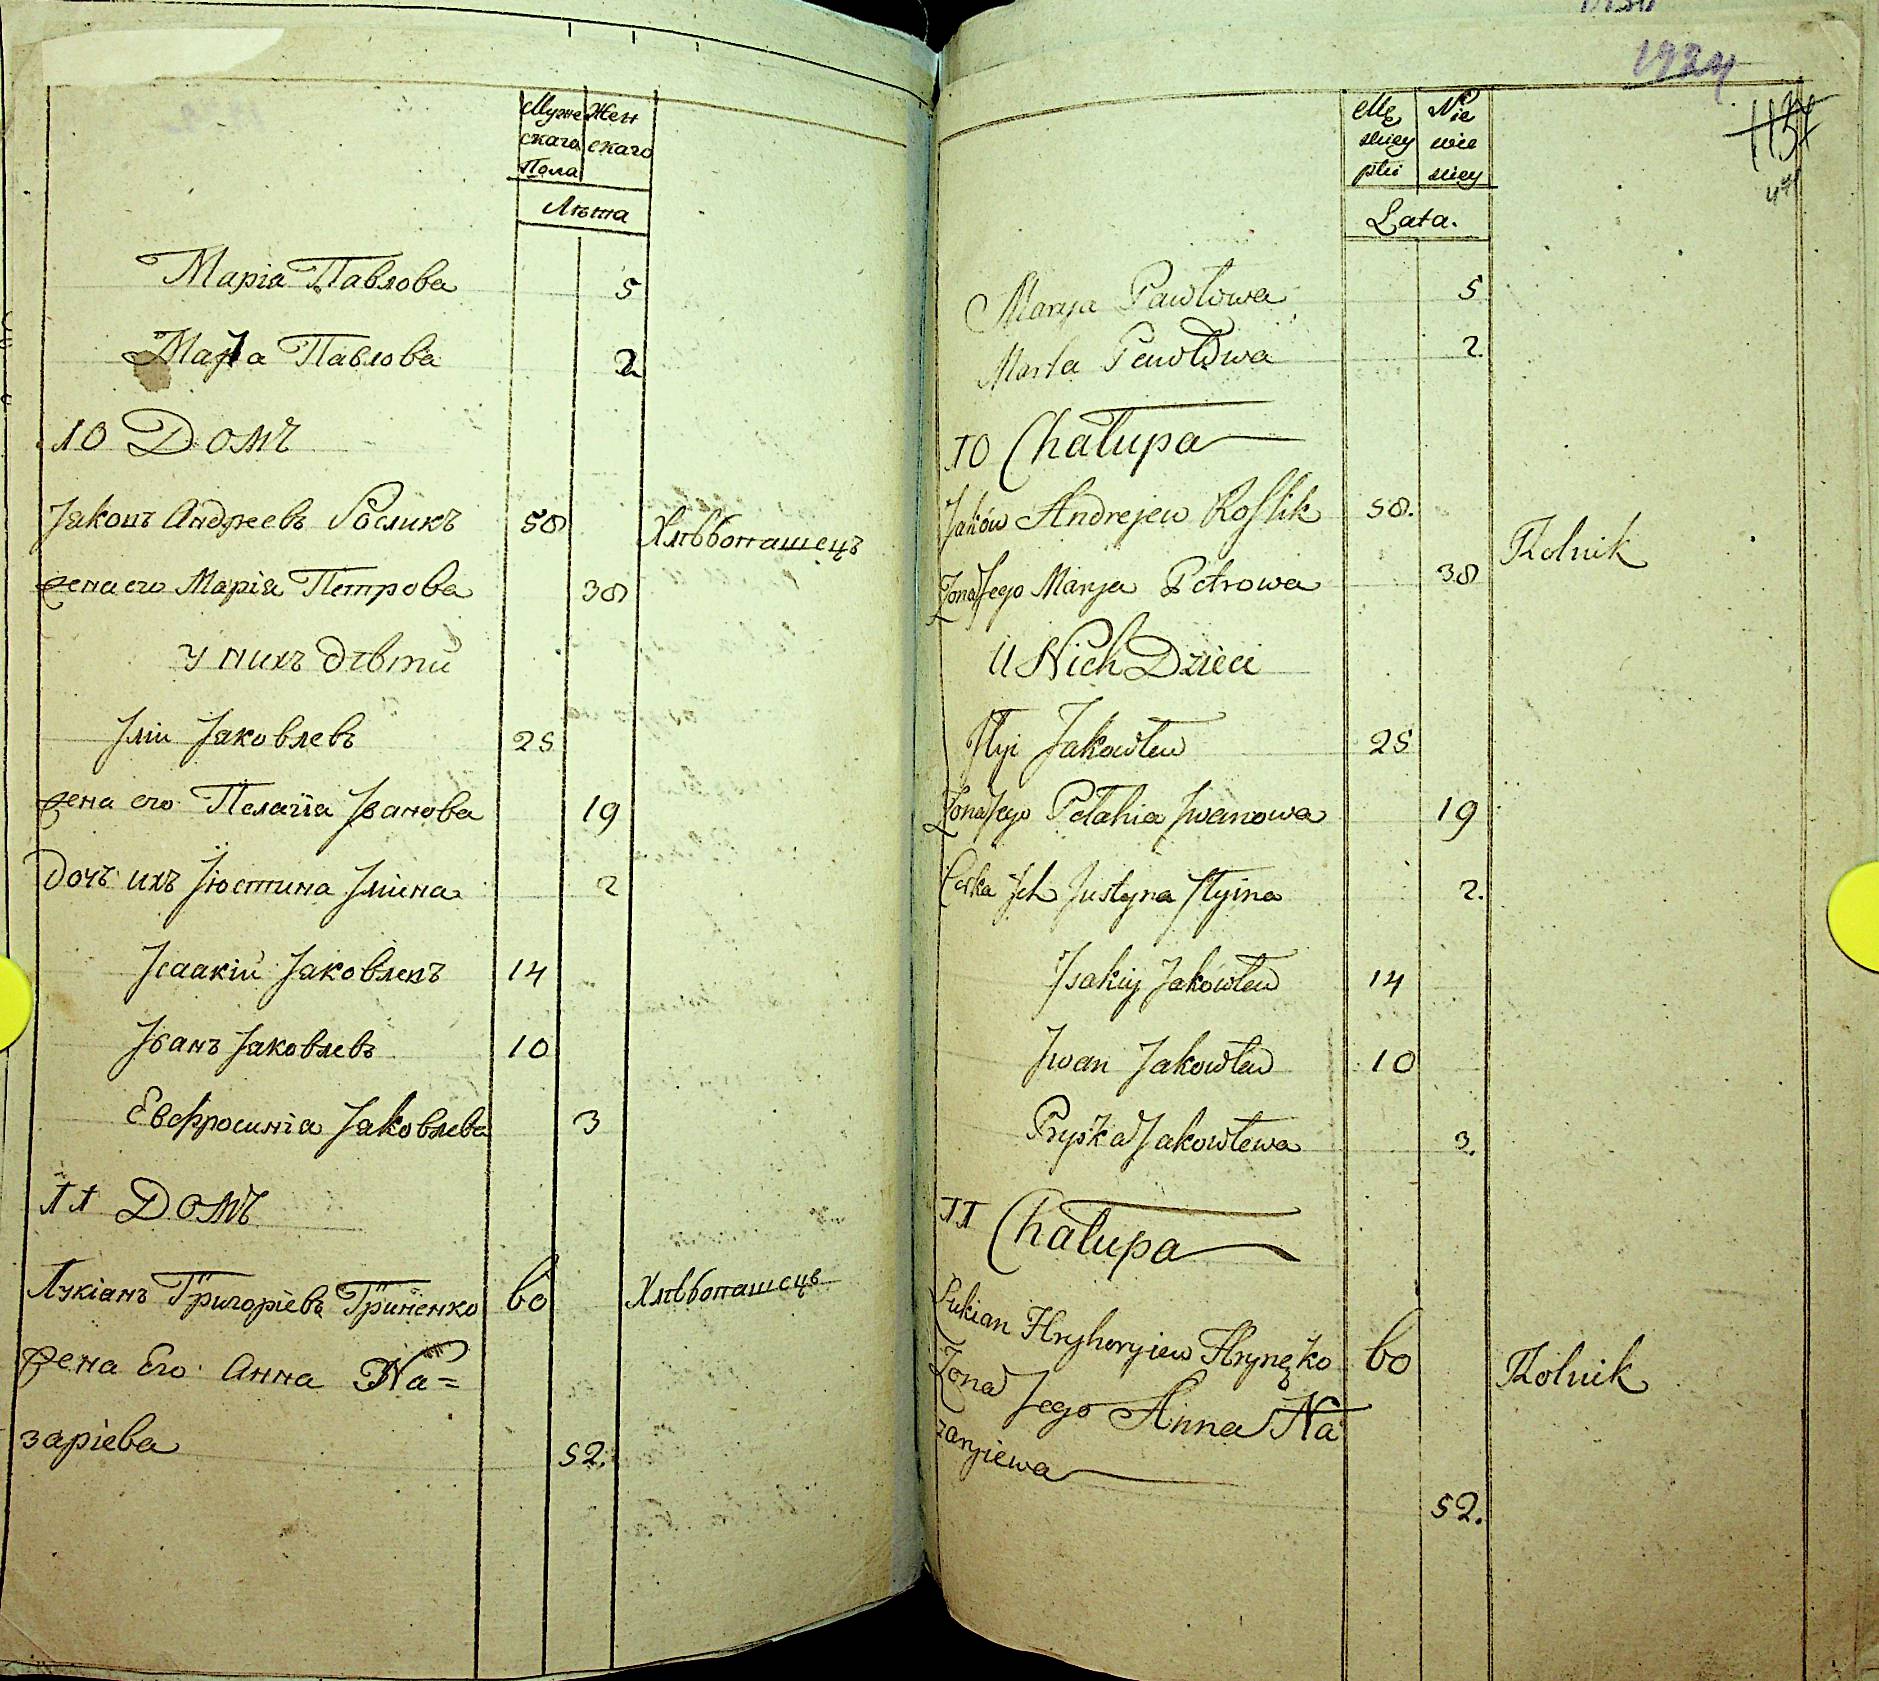 Муже Жен
скаго скаго
Пола
Лѣта
Марія Павлова 5
Марѳа Павлова 2
10 Домъ
Jаковъ Андреевъ Росликъ 58 Хлѣбопашецъ
жена его Марія Петрова 38
у нихъ дѣти
Jлїи Jаковлевъ 25
жена его Пелагїа Jванова 19
дочь ихъ Jюстина Jлїина 2
Jсаакїй Jаковлевъ 14
Jванъ Jаковлевъ 10
Евфросинїа Jаковлева 3
11 Домъ
Лукїанъ Григорїевъ Гриненко 60 Хлѣбопашецъ
жена Его Анна На=
зарїева 52.
1924
Mę Nie
skiey wie
płci skiey
Lata.
Marya Pawłowa 5
Marta Pawłowa 2.
10 Chałupa
Jaków Andrejew Roslik 58. Rolnik
Żona Jego Marya Petrowa 38
U Nich Dzieci
Ilyi Jakowlew 25
Żona Jego Pelahia Jwanowa 19
Corka Jch Justyna Ilyina 2.
Jsakiy Jakowlew 14
Jwan Jakowlew 10
Pryśka Jakowlewa 3.
11 Chałupa
Łukian Hryhoryiew Hrynęko 60 Rolnik
Żona Jego Anna Na
zaryiewa
52.